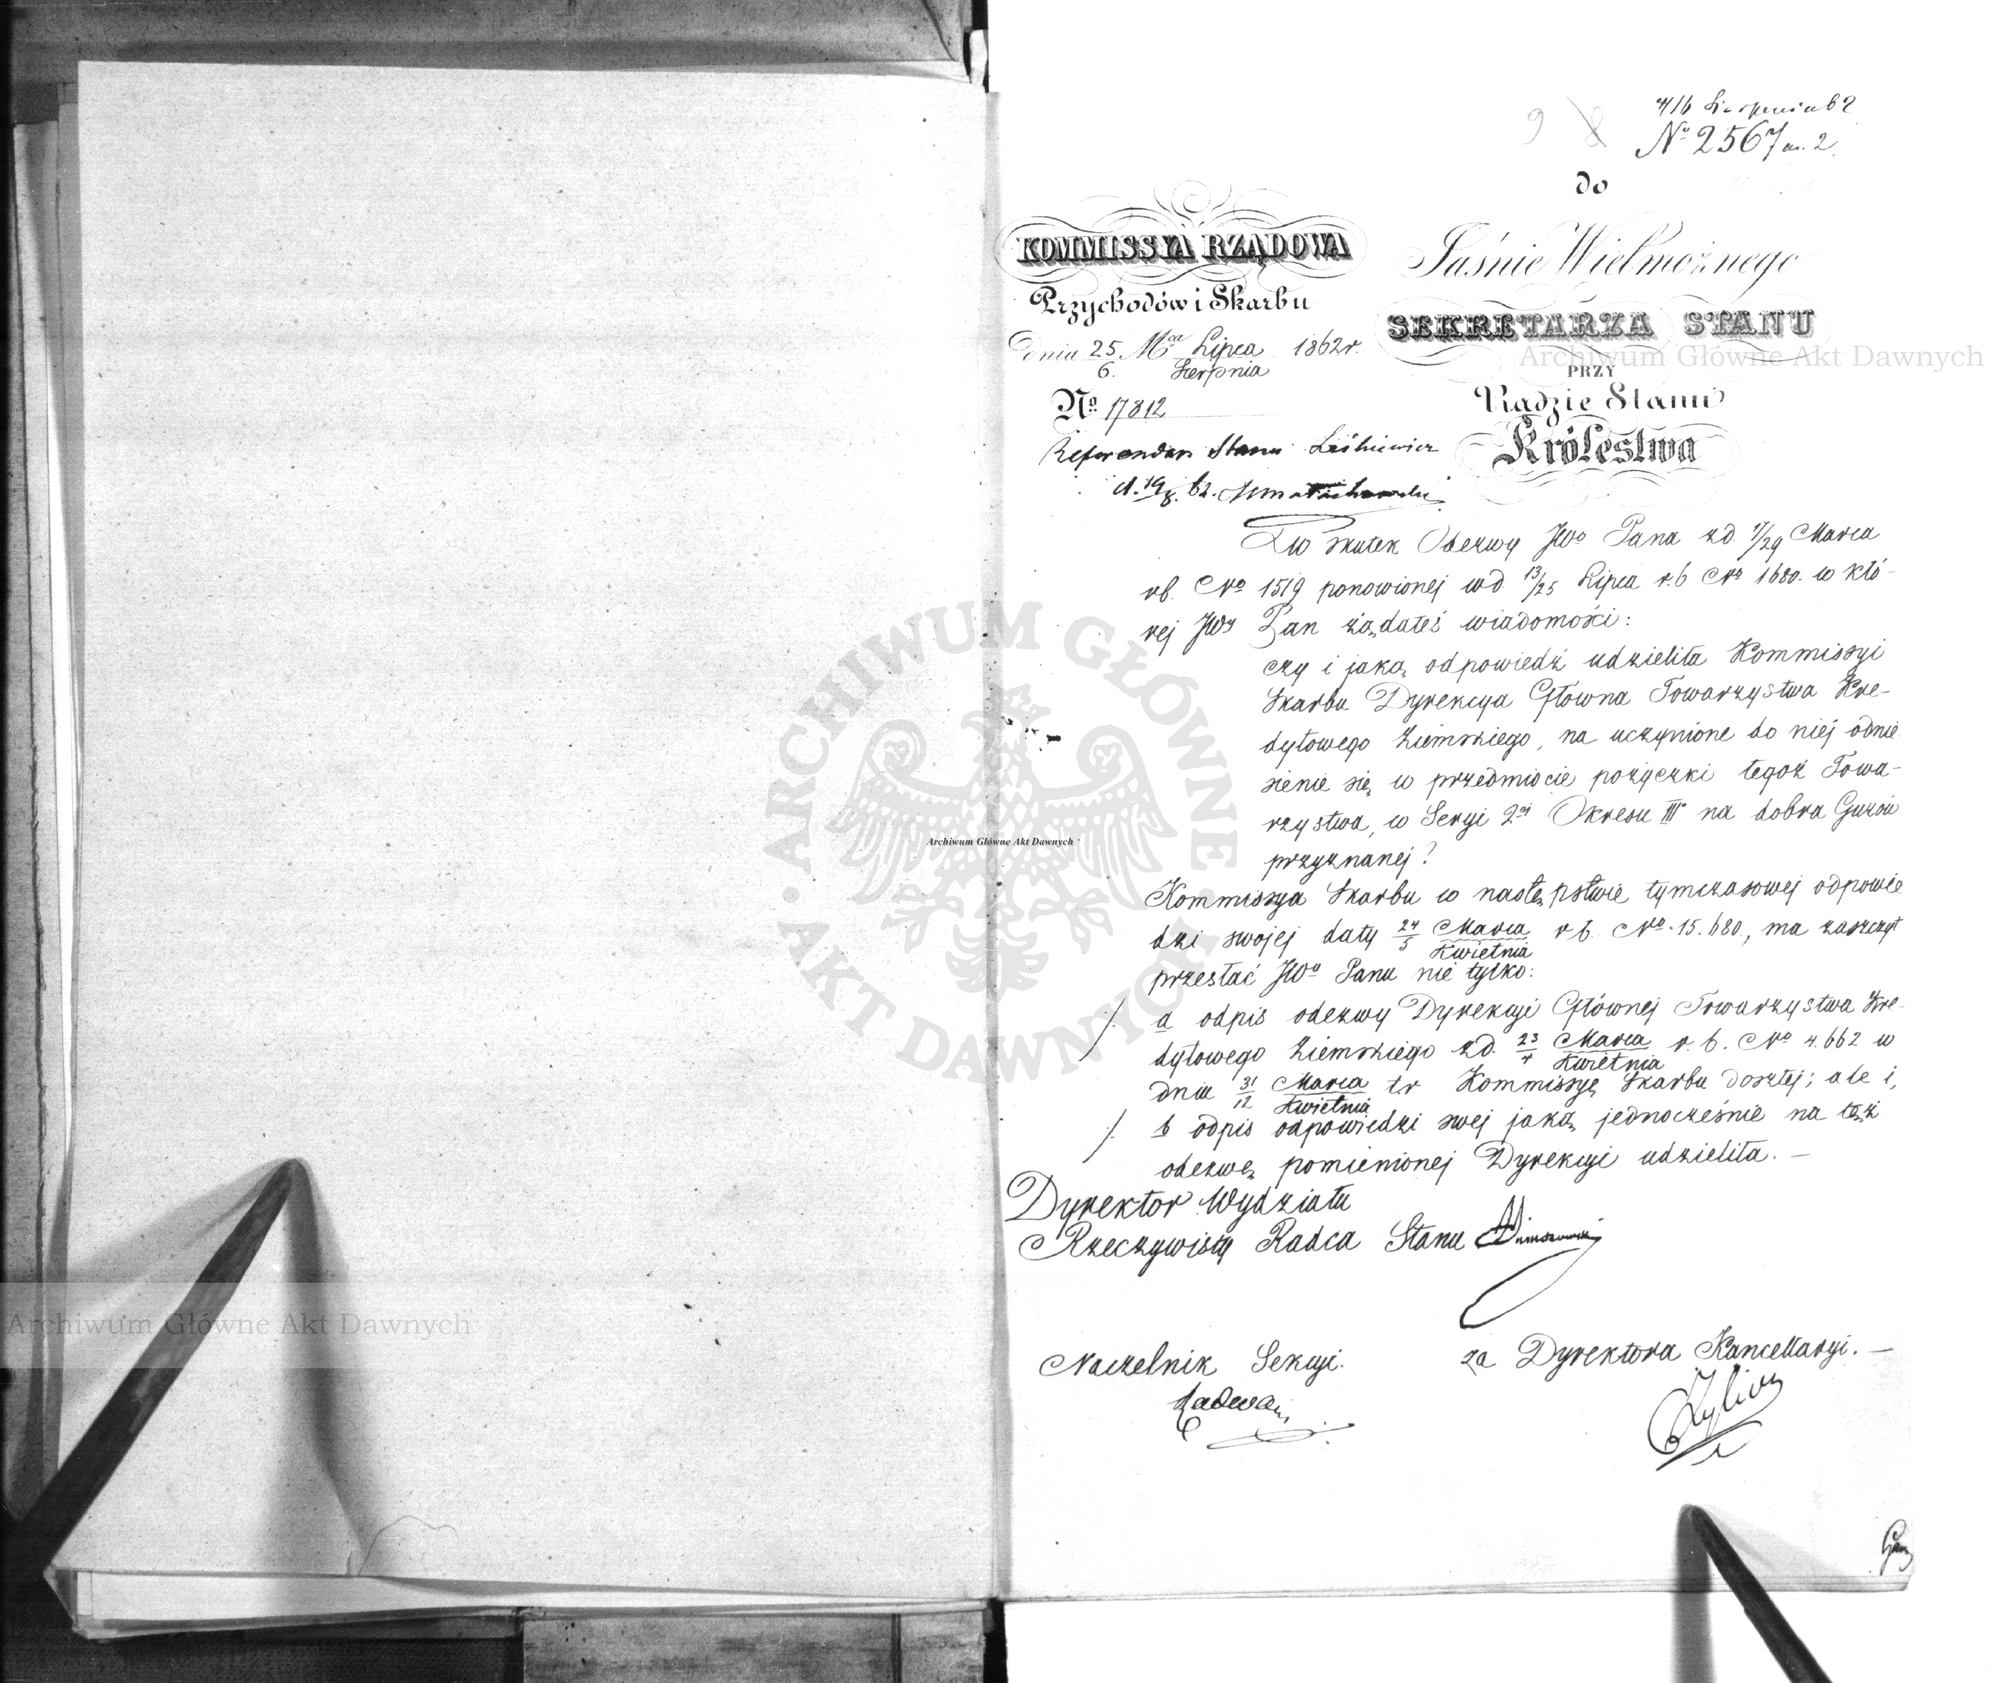 4/16 Sierpnia 62
No 2567 m. 2.
9 8
do
KOMMISSYA RZĄDOWA
Przychodów i Skarbu
Dnia 25/6. Mca Lipca/Sierpnia 1862 r.
No 17812
Jaśnie Wielmożnego
SEKRETARZA STANU
PRZY
Radzie Stanu
Królestwa
Referendarz Stanu Leśniewicz
d. 19/8. 62.
W skutek Odezwy JWo Pana z d. 1/29 Marca
r.b. No 1519 ponowionej w d. 13/25 Lipca r.b No 1680. w któ-
rej JWy Pan żądałeś wiadomości:
czy i jaką odpowiedź udzieliła Kommissyi
Skarbu Dyrekcya Główna Towarzystwa Kre-
dytowego Ziemskiego, na uczynione do niej odnie
sienie się w przedmiocie pożyczki tegoż Towa-
rzystwa, w Seryi 2ej Okresu III na dobra Guzów
przyznanej?
Kommissya Skarbu w następstwie tymczasowej odpowie
dzi swojej daty 24/5 Marca/Kwietnia r b. No. 15.680, ma zaszczyt
przesłać JWu Panu nie tylko:
/. a odpis odezwy Dyrekcyi Głównej Towarzystwa Kre-
dytowego Ziemskiego z d. 23/4 Marca/Kwietnia r. b. No 4.662 w
dniu 31/12 Marca/Kwietnia t.r Kommissyę Skarbu doszłej; ale i,
/. b odpis odpowiedzi swej jaką jednocześnie na tęż
odezwę pomienionej Dyrekcyi udzieliła. —
Dyrektor Wydziału
Rzeczywisty Radca Stanu
Naczelnik Sekcyi.
za Dyrektora Kancellaryi. —
Archiwum Główne Akt Dawnych
Archiwum Główne Akt Dawnych
Archiwum Główne Akt Dawnych
ARCHIWUM GŁÓWNE · AKT DAWNYCH ·